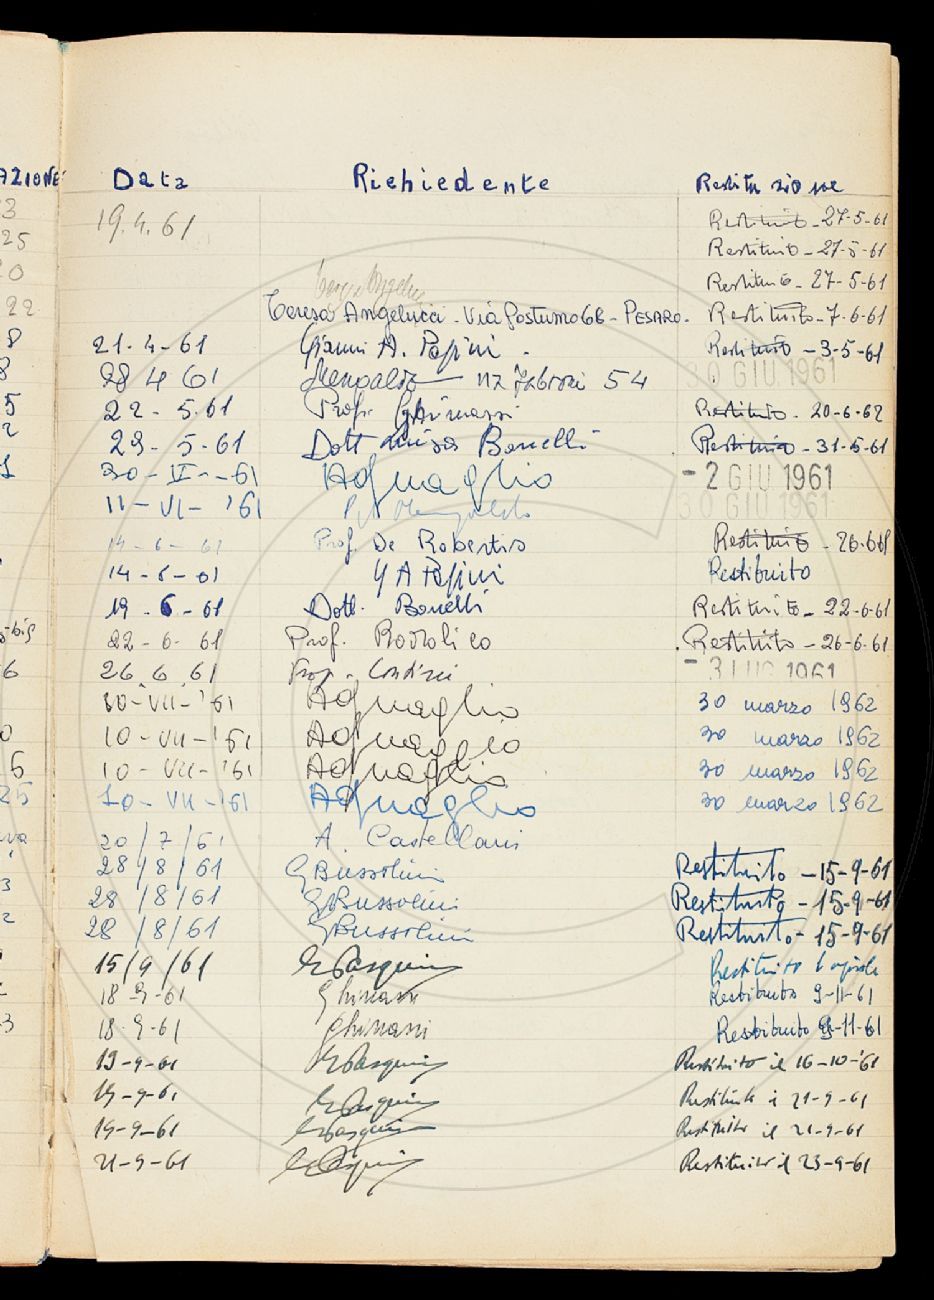 AZIONE Data Richiedente Restituzione
3 19.4.61 Restituito - 27-5-61
25 Restituito - 27-5-61
20 Restituito - 27-5-61
22 Teresa Angelucci - Via Postumo 66 - PESARO - Restituito - 7-6-61
8 21-4-61 Gianni A. Papini - Restituito - 3-5-61
8 28 4 61 Mengaldo 54 30 GIU. 1961
5 22 - 5.61 Prof. Ghinassi Restituito - 20-6-62
2 29 - 5-61 Dott Luisa Bonelli Restituito - 31-5-61
1 30 - V - - 61 A Quaglio - 2 GIU. 1961
11 - VI - '61 Mengaldo 30 GIU. 1961
14 - 6 - 61 Prof. De Robertis Restituito - 26-6-61
14 - 6 - 61 G A Papini Restituito
19 - 6 - 61 Dott. Bonelli Restituito - 22-6-61
22 - 6 - 61 Prof. Restituito - 26-6-61
6 26.6.61 Prof. - 3 LUG. 1961
10 - VII - '61 A Quaglio 30 marzo 1962
0 10 - VII - '61 A Quaglio 30 marzo 1962
6 10 - VII - '61 A Quaglio 30 marzo 1962
25 10 - VII - '61 A Quaglio 30 marzo 1962
20/7/61 A. Castellani
28/8/61 G Bussolini Restituito - 15-9-61
28/8/61 G Bussolini Restituito - 15-9-61
28/8/61 G Bussolini Restituito - 15-9-61
15/9/61 Pasquini Restituito
18-9-61 Ghinassi Restituito 9-11-61
3 18-9-61 Ghinassi Restituito 9-11-61
19-9-61 Pasquini Restituito il 16-10-'61
19-9-61 Pasquini Restituito il 21-9-61
19-9-61 Pasquini Restituito il 21-9-61
21-9-61 Pasquini Restituito il 23-9-61